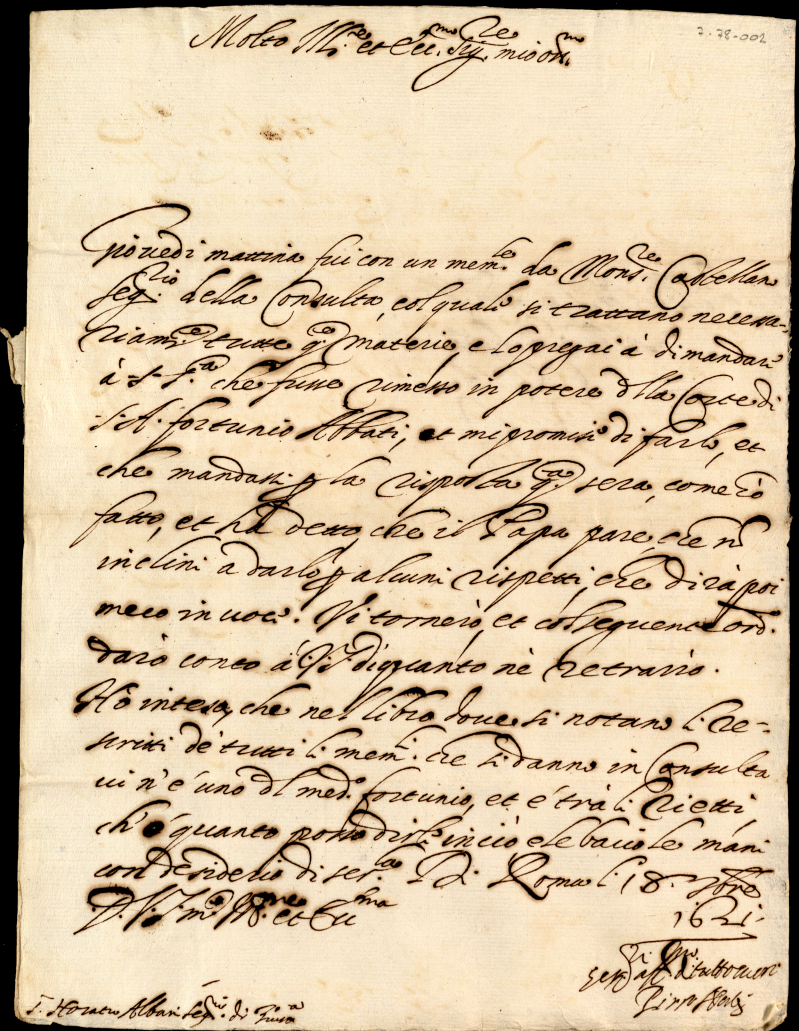 7-78-002
Molto Ill.re et Ecc.mo Sig.re mio oss.mo
Giovedi mattina fui con un mem.le da Mons.re Castellan
Seg.rio della Consulta, col quale si trattano necessa-
riam.te tutte q.e materie, e lo pregai à dimandare
à S. S.tà che fusse rimesso in potere dlla Corte di
S. A. fortunio Abbati, et mi promise di farlo, et
che mandassi p la risposta q.ta sera, come hò
fatto, et hà detto, che il Papa pare, che nō
inclini a darlo p alcuni rispetti, che dirà poi
meco in voce. Vi tornerò, et
darò conto à V. S. di quanto nè retrarrò.
Hò inteso, che nel libro dove si notano li re-
scritti de tutti li mem.li che si danno in Consulta
vi n'è uno dl med.o fortunio, et è trà li rietti,
ch'è quanto posso dirle in ciò e le bacio le mani
con desiderio di ser.la Di Roma li 18. 9bre
1621.
D. V. S. m.to Ill.re et Ecc.ma
ser.re aff.mo di tutto cuore
S. Horatio Albani Seg.rio di